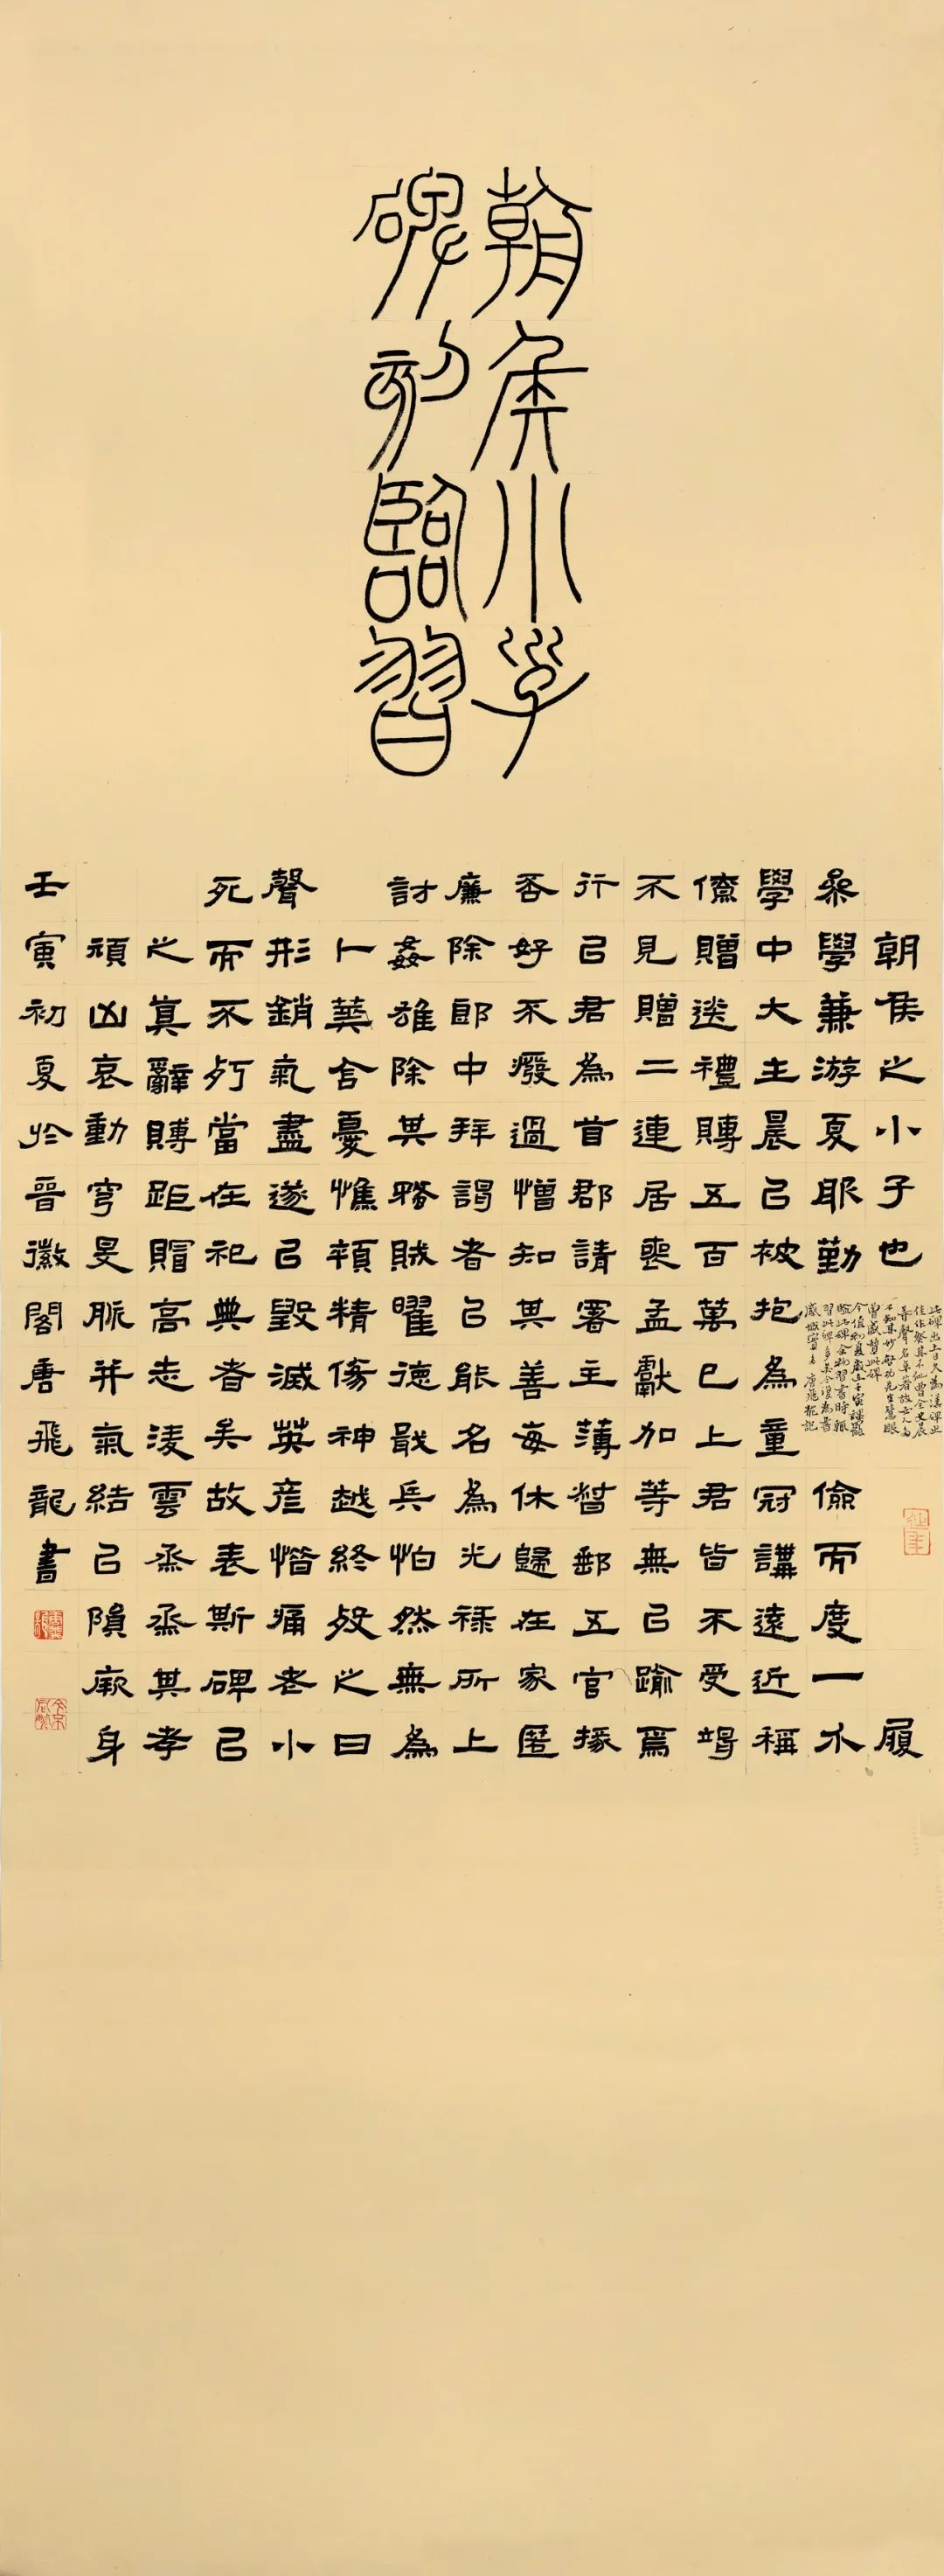 朝侯小子
碑初臨習
朝侯之小子也 履
喿學兼游夏服勤 儉而度一木
學中大主晨已被抱為童冠講遠近稱
僚贈送禮賻五百萬已上君皆不受竭
不見贈二連居喪孟獻加等無已踰焉
行己君為首郡請署主薄督郵五官掾
否好不癈過憎知其善每休歸在家匿
廉除郎中拜謁者已能名為光祿所上
討姦雄除其蟊賊曜德戢兵怕然無為
卜葬含憂憔顇精傷神越終歿之日
聲形銷氣盡遂已毀滅英彥惜痛老小
死而不朽當在祀典者矣故表斯碑已
之其辭賻距贈高志淩雲烝烝其孝
頑凶哀動穹旻脈并氣結已隕厥身
壬寅初夏於晉徽閣唐飛龍書